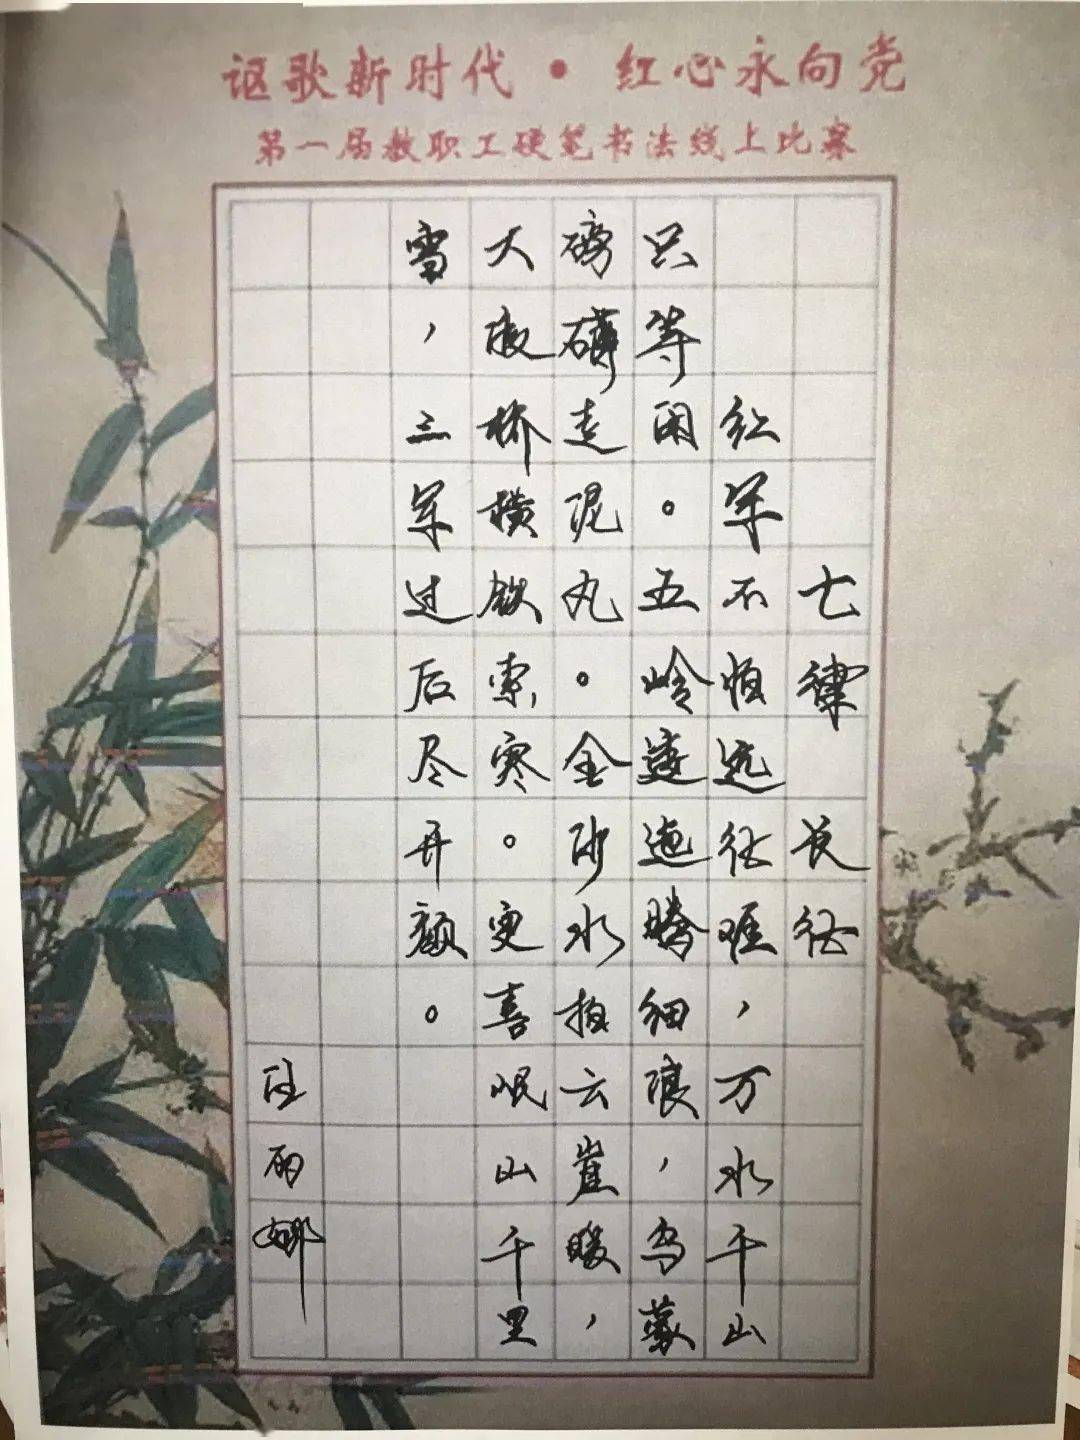 讴歌新时代·红心永向党
第一届教职工硬笔书法线上比赛
七律 长征
红军不怕远征难，万水千山
只等闲。五岭逶迤腾细浪，乌蒙
磅礴走泥丸。金沙水拍云崖暖，
大渡桥横铁索寒。更喜岷山千里
雪，三军过后尽开颜。
丽娜